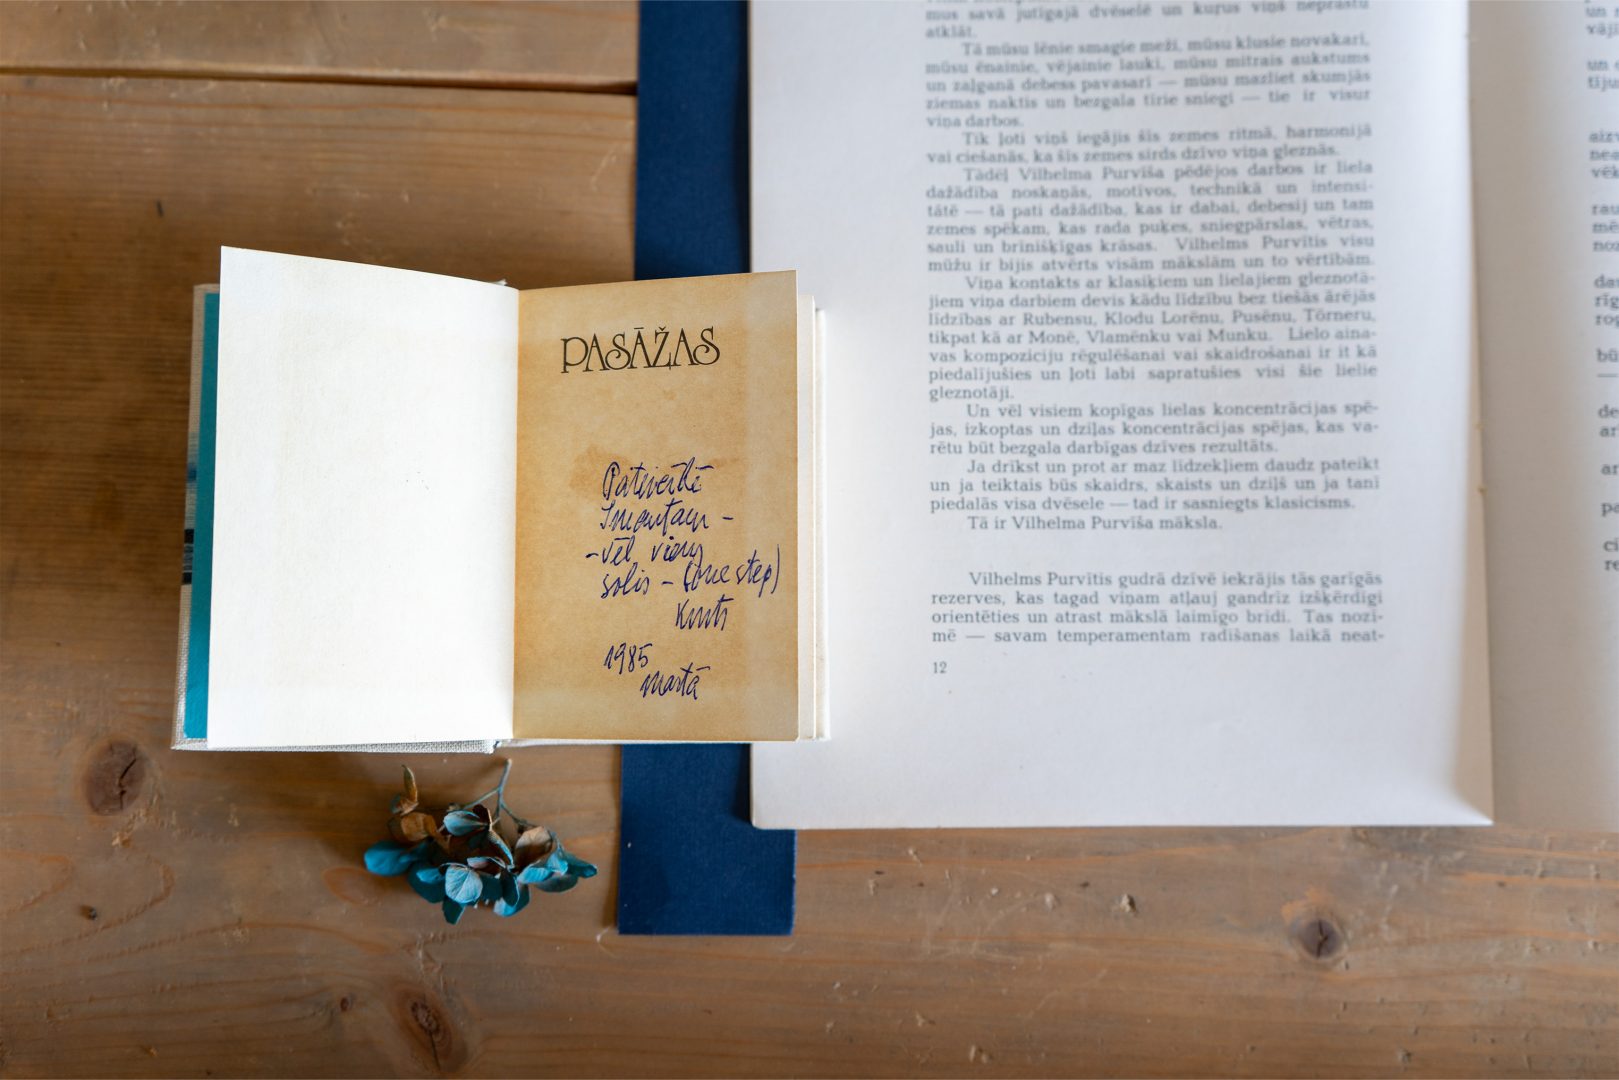 PASĀŽAS
Pateicībā
Imantam -
- vēl viens
solis - (one step)
Knuts
1985
martā
mus savā jutīgajā dvēselē un kuŗus viņš neprastu
atklāt.
Tā mūsu lēnie smagie meži, mūsu klusie novakari,
mūsu ēnainie, vējainie lauki, mūsu mitrais aukstums
un zaļganā debess pavasarī — mūsu mazliet skumjās
ziemas naktis un bezgala tīrie sniegi — tie ir visur
viņa darbos.
Tik ļoti viņš iegājis šīs zemes ritmā, harmonijā
vai ciešanās, ka šīs zemes sirds dzīvo viņa gleznās.
Tādēļ Vilhelma Purvīša pēdējos darbos ir liela
dažādība noskaņās, motīvos, technikā un intensi-
tātē — tā pati dažādība, kas ir dabai, debesij un tam
zemes spēkam, kas rada puķes, sniegpārslas, vētras,
sauli un brīnišķīgas krāsas. Vilhelms Purvītis visu
mūžu ir bijis atvērts visām mākslām un to vērtībām.
Viņa kontakts ar klasiķiem un lielajiem gleznotā-
jiem viņa darbiem devis kādu līdzību bez tiešās ārējās
līdzības ar Rubensu, Klodu Lorēnu, Pusēnu, Törneru,
tikpat kā ar Monē, Vlamēnku vai Munku. Lielo aina-
vas kompoziciju rēgulēšanai vai skaidrošanai ir it kā
piedalījušies un ļoti labi sapratušies visi šie lielie
gleznotāji.
Un vēl visiem kopīgas lielas koncentrācijas spē-
jas, izkoptas un dziļas koncentrācijas spējas, kas va-
rētu būt bezgala darbīgas dzīves rezultāts.
Ja drīkst un prot ar maz līdzekļiem daudz pateikt
un ja teiktais būs skaidrs, skaists un dziļš un ja tanī
piedalās visa dvēsele — tad ir sasniegts klasicisms.
Tā ir Vilhelma Purvīša māksla.
Vilhelms Purvītis gudrā dzīvē iekrājis tās garīgās
rezerves, kas tagad viņam atļauj gandrīz izšķērdīgi
orientēties un atrast mākslā laimīgo brīdi. Tas nozī-
mē — savam temperamentam radīšanas laikā neat-
12